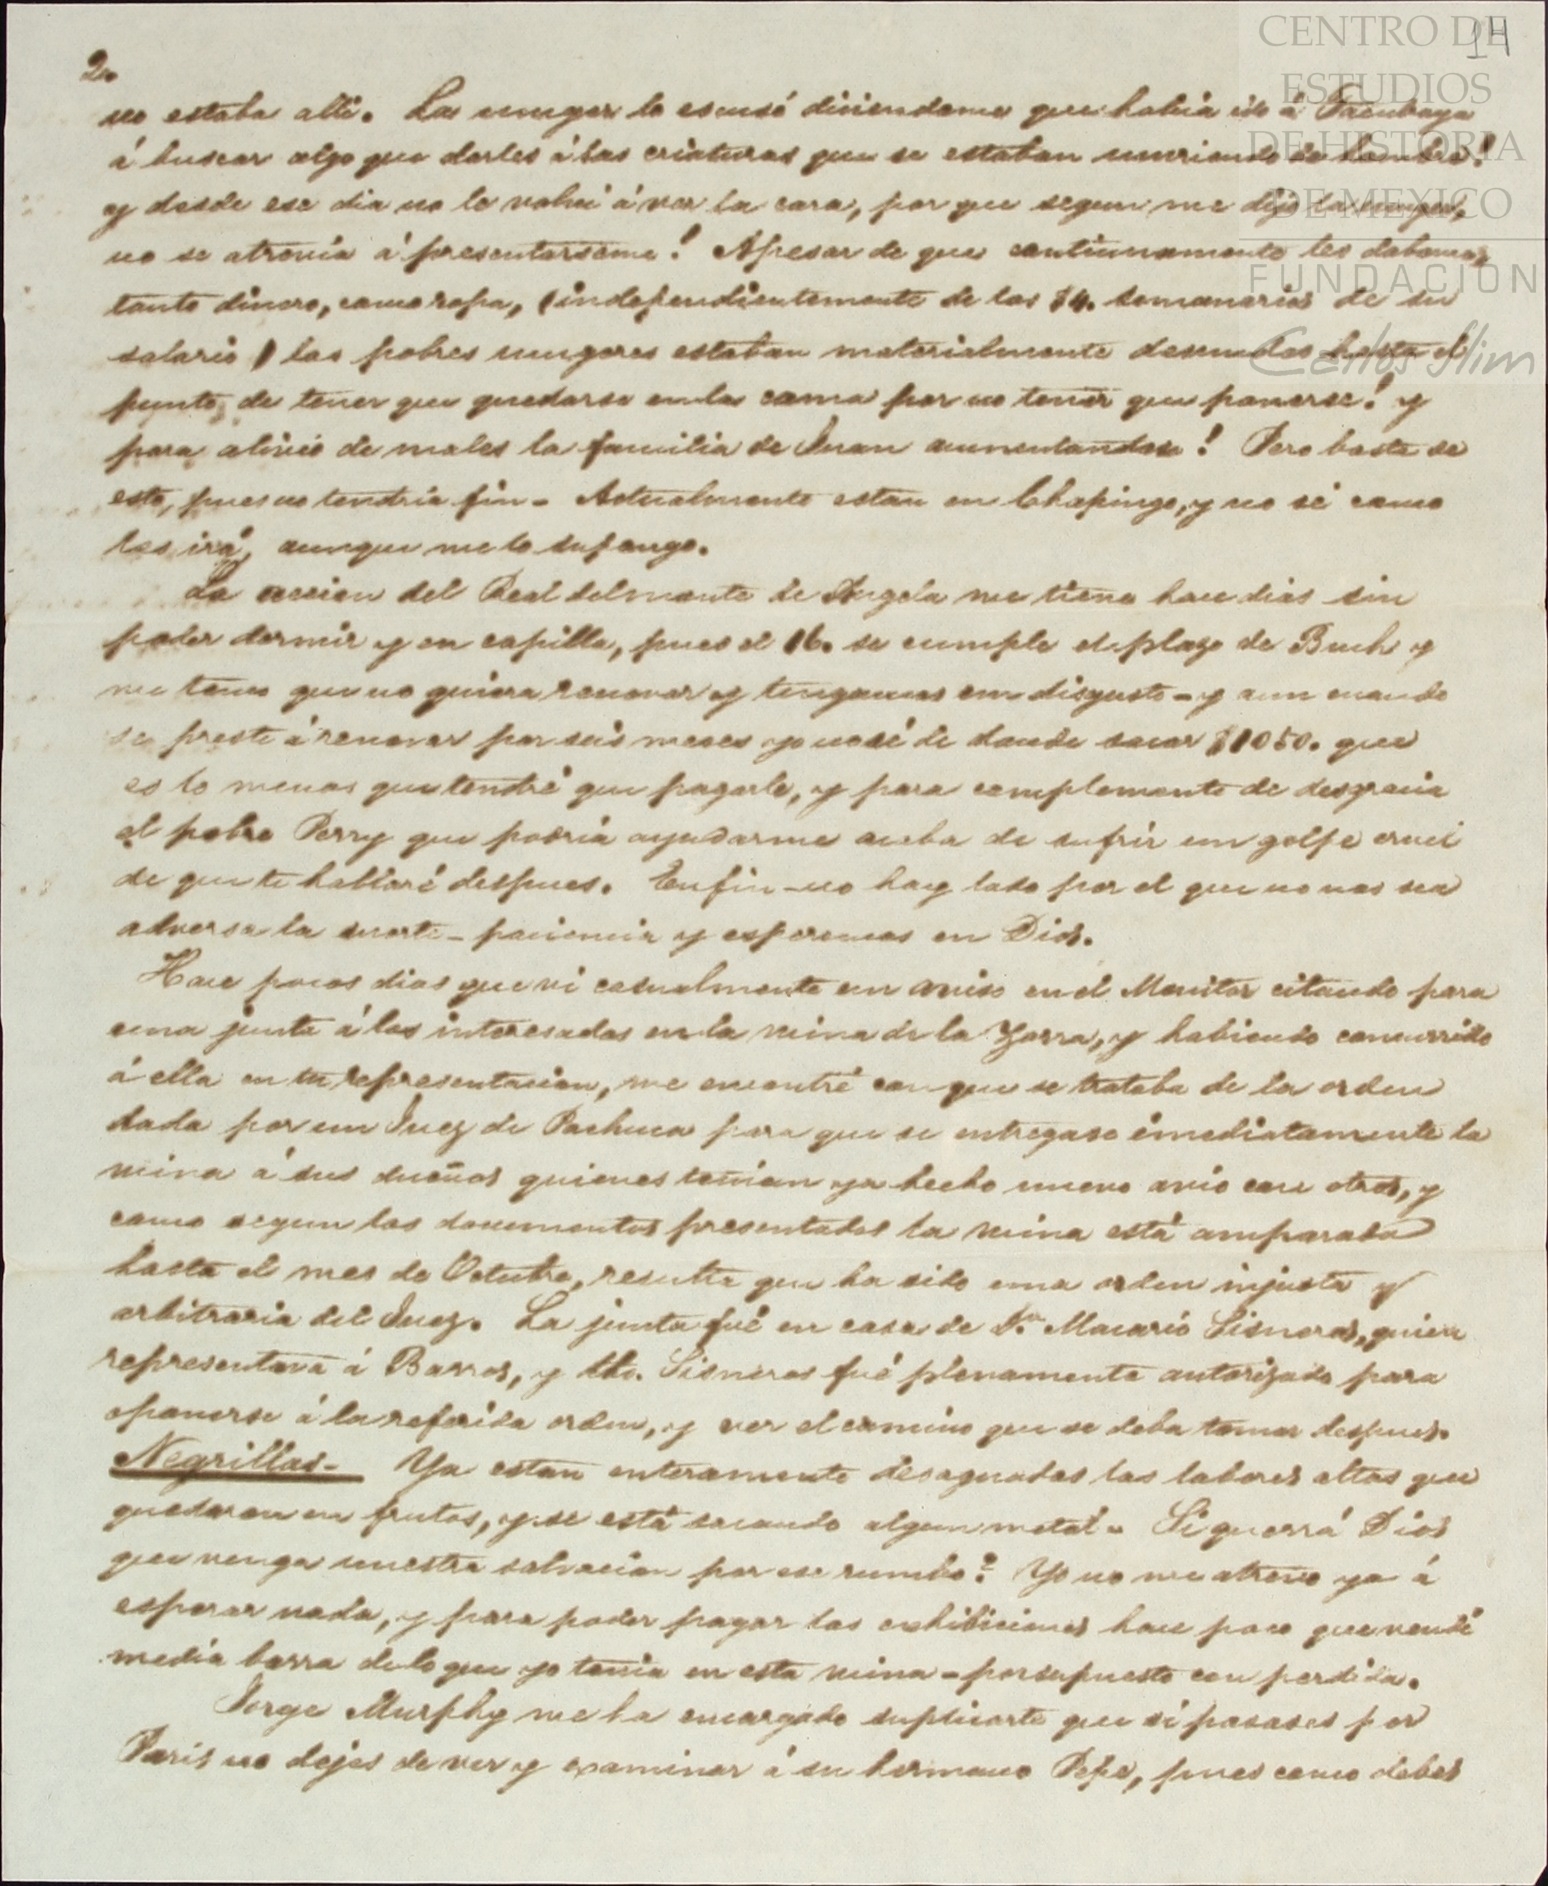 2.
14
CENTRO DE
ESTUDIOS
DE HISTORIA
DE MEXICO
FUNDACIÓN
Carlos Slim
no estaba alli. La muger lo escusó diciendome que habia ido á Tacubaya
á buscar algo que darles á las criaturas que se estaban muriendo de hambre!
y desde ese dia no le volví á ver la cara, por que segun me dijo la muger,
no se atrevia á presentarseme! Apesar de que continuamente les dabamos
tanto dinero, como ropa, (independientemente de los $4. semanarios de su
salario) las pobres mugeres estaban materialmente desnudas hasta el
punto de tener que quedarse en la cama por no tener que ponerse! y
para alivio de males la familia de Juan aumentandose! Pero basta de
esto, pues no tendría fin - Actualmente estan en Chapingo, y no sé como
les irá, aunque me lo supongo.
La accion del Real del monte de Angela me tiene hace dias sin
poder dormir y en capilla, pues el 16. se cumple el plazo de Buch y
me temo que no quiera renovar y tengamos un disgusto - y aun cuando
se preste á renovar por seis meses yo no sé de donde sacar $1050. que
es lo menos que tendré que pagarle, y para complemento de desgracia
el pobre Perry que podría ayudarme acaba de sufrir un golpe cruel
de que te hablaré despues. En fin - no hay lado por el que no nos sea
adversa la suerte - paciencia y esperemos en Dios.
Hace pocos dias que ví casualmente un aviso en el Monitor citando para
una junta á los interesados en la mina de la Zorra, y habiendo concurrido
á ella en tu representacion, me encontré con que se trataba de la orden
dada por un Juez de Pachuca para que se entregase imediatamente la
mina á sus dueños quienes tenian ya hecho nuevo avio con otros, y
como segun los documentos presentados la mina está amparada
hasta el mes de Octubre, resulta que ha sido una orden injusta y
arbitraria del Juez. La junta fué en casa de Dn. Macario Sisneros, quien
representava á Barros, y dho. Sisneros fué plenamente autorizado para
oponerse á la referida orden, y ver el camino que se deba tomar despues.
Negrillas - Ya estan enteramente desaguadas las labores altas que
quedaron en frutos, y se está sacando algun metal - Si querrá Dios
que venga nuestra salvacion por ese rumbo? Yo no me atrevo ya á
esperar nada, y para poder pagar las exhibiciones hace poco que vendí
media barra de lo que yo tenia en esta mina - por supuesto con perdida.
Jorge Murphy me ha encargado suplicarte que si pasases por
Paris no dejes de ver y examinar á su hermano Pepe, pues como debes